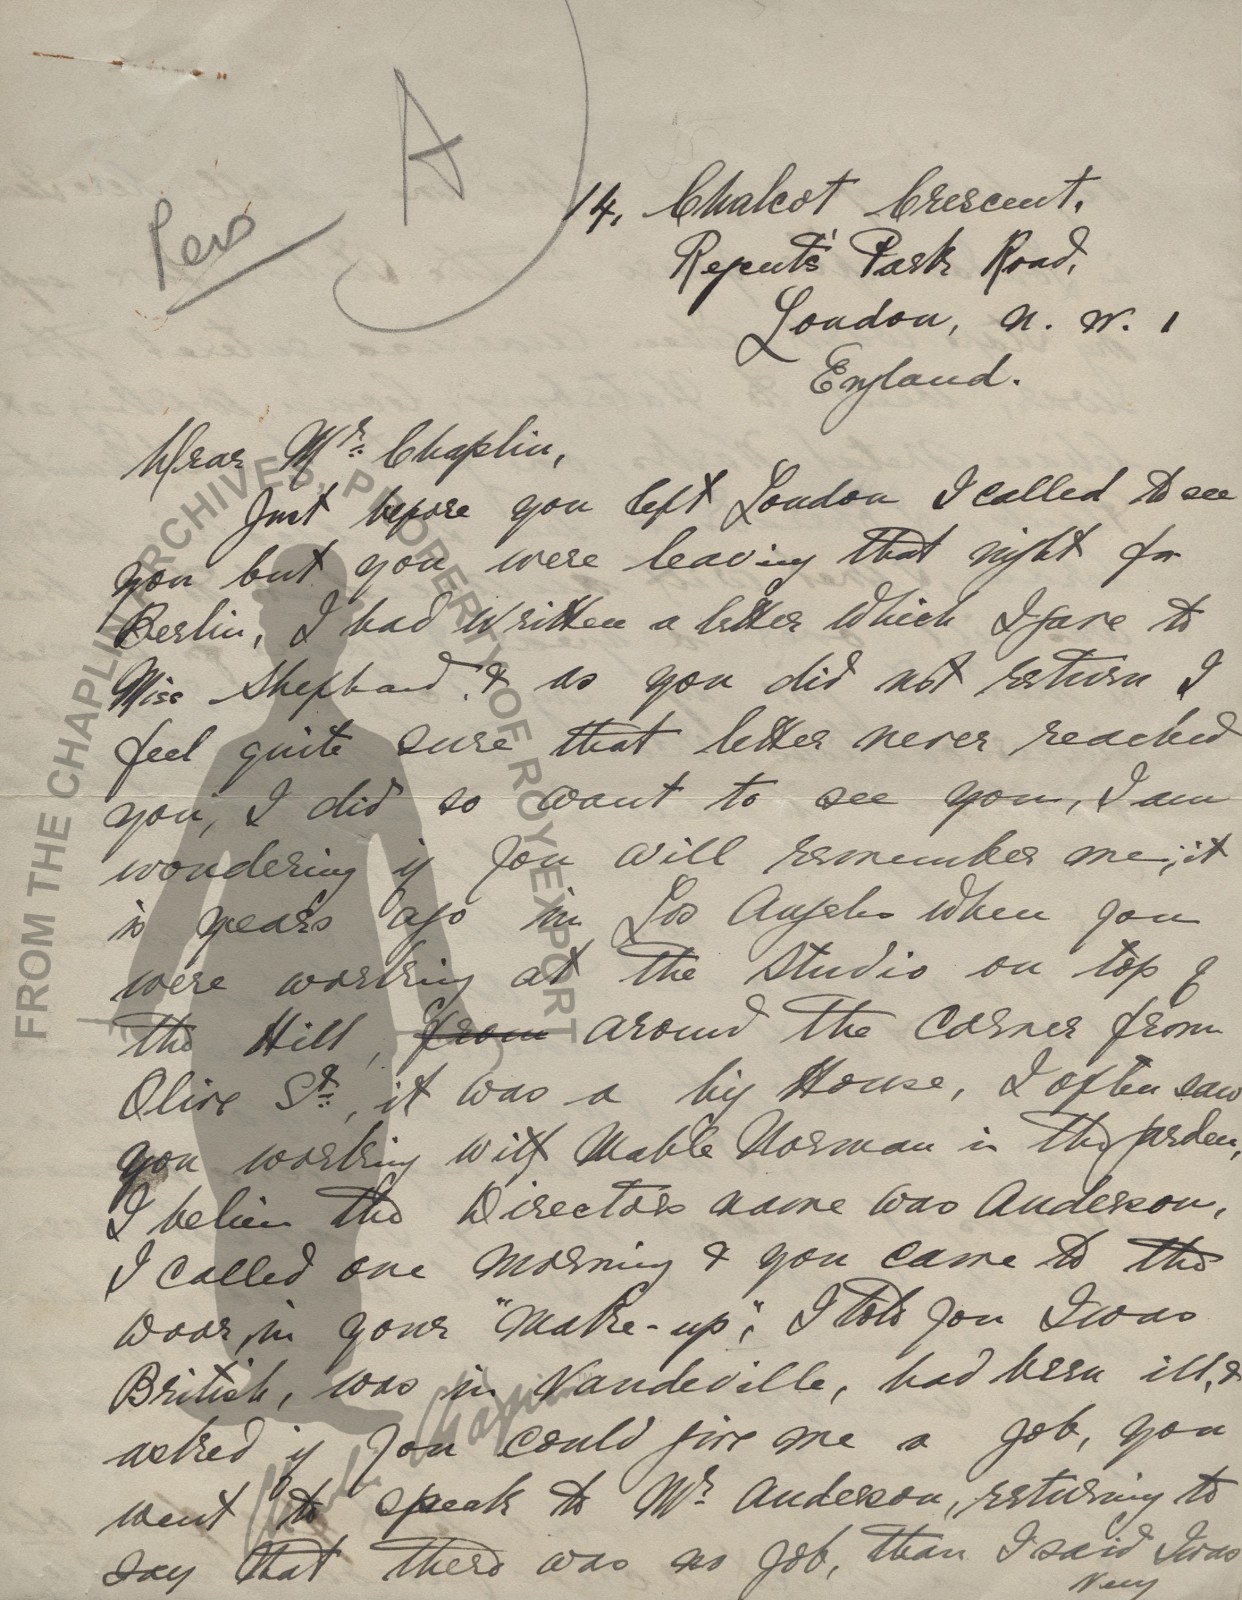 A
Pers
14, Chalcot Crescent.
Regents' Park Road,
London, N. W. 1
England.
Dear Mr. Chaplin,
Just before you left London I called to see
you but you were leaving that night for
Berlin, I had written a letter which I gave to
Miss Shephard, & as you did not return I
feel quite sure that letter never reached
you, I did so want to see you, I am
wondering if you will remember me, it
is years ago in Los Angeles when you
were working at the Studio on top of
the Hill, from around the corner from
Olive St., it was a big House, I often saw
you working with Mable Norman in the garden,
I believe the Directors name was Anderson,
I called one morning & you came to the
door, in your "make-up", I told you I was
British, was in Vaudeville, had been ill, &
asked if you could give me a job, you
went to speak to Mr. Anderson, returning to
say that there was no job, than I said I was
very
FROM THE CHAPLIN ARCHIVES, PROPERTY OF ROY EXPORT
Charlie Chaplin